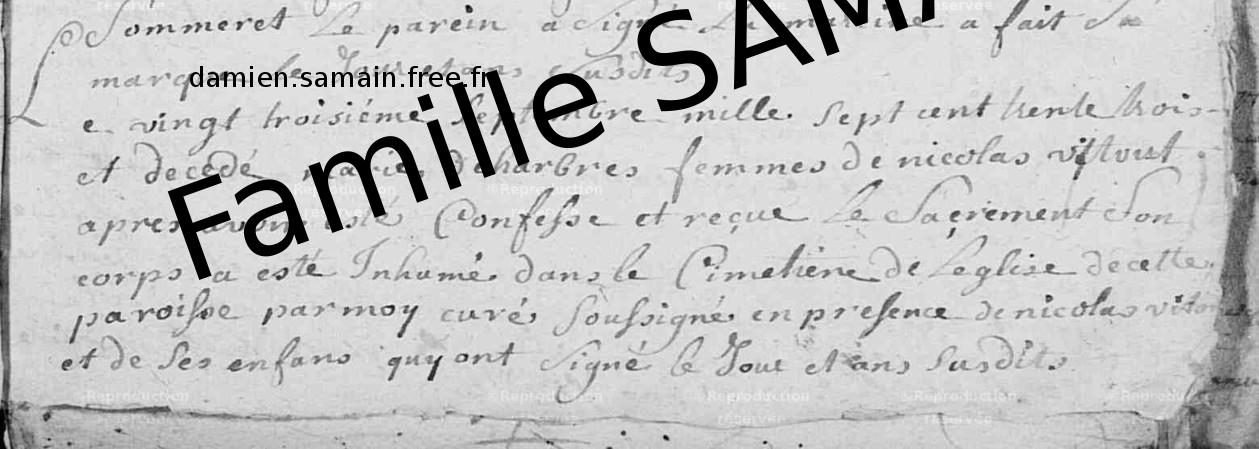 Sommeret Le parein a Signé La marine a fait Sa
marque le Jour et ans Susdits
damien.samain.free.fr
Famille SAMA
Le vingt troisiéme Septembre mille Sept cent trente trois
et decedé marie deharbres femmes de nicolas
apres avoir esté Confesse et reçue Le Saçrement Son
corps a esté Inhumé dans le Cimetiere de Leglise de cette
paroisse par moy curé Soussigné en presence de nicolas
et de Ses enfans quy ont Signé le Jour et ans Susdits
©Reproduction réservée